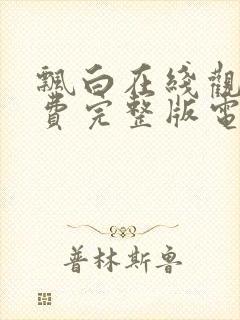 飄白在綫觀
費完整版電
普林斯魯